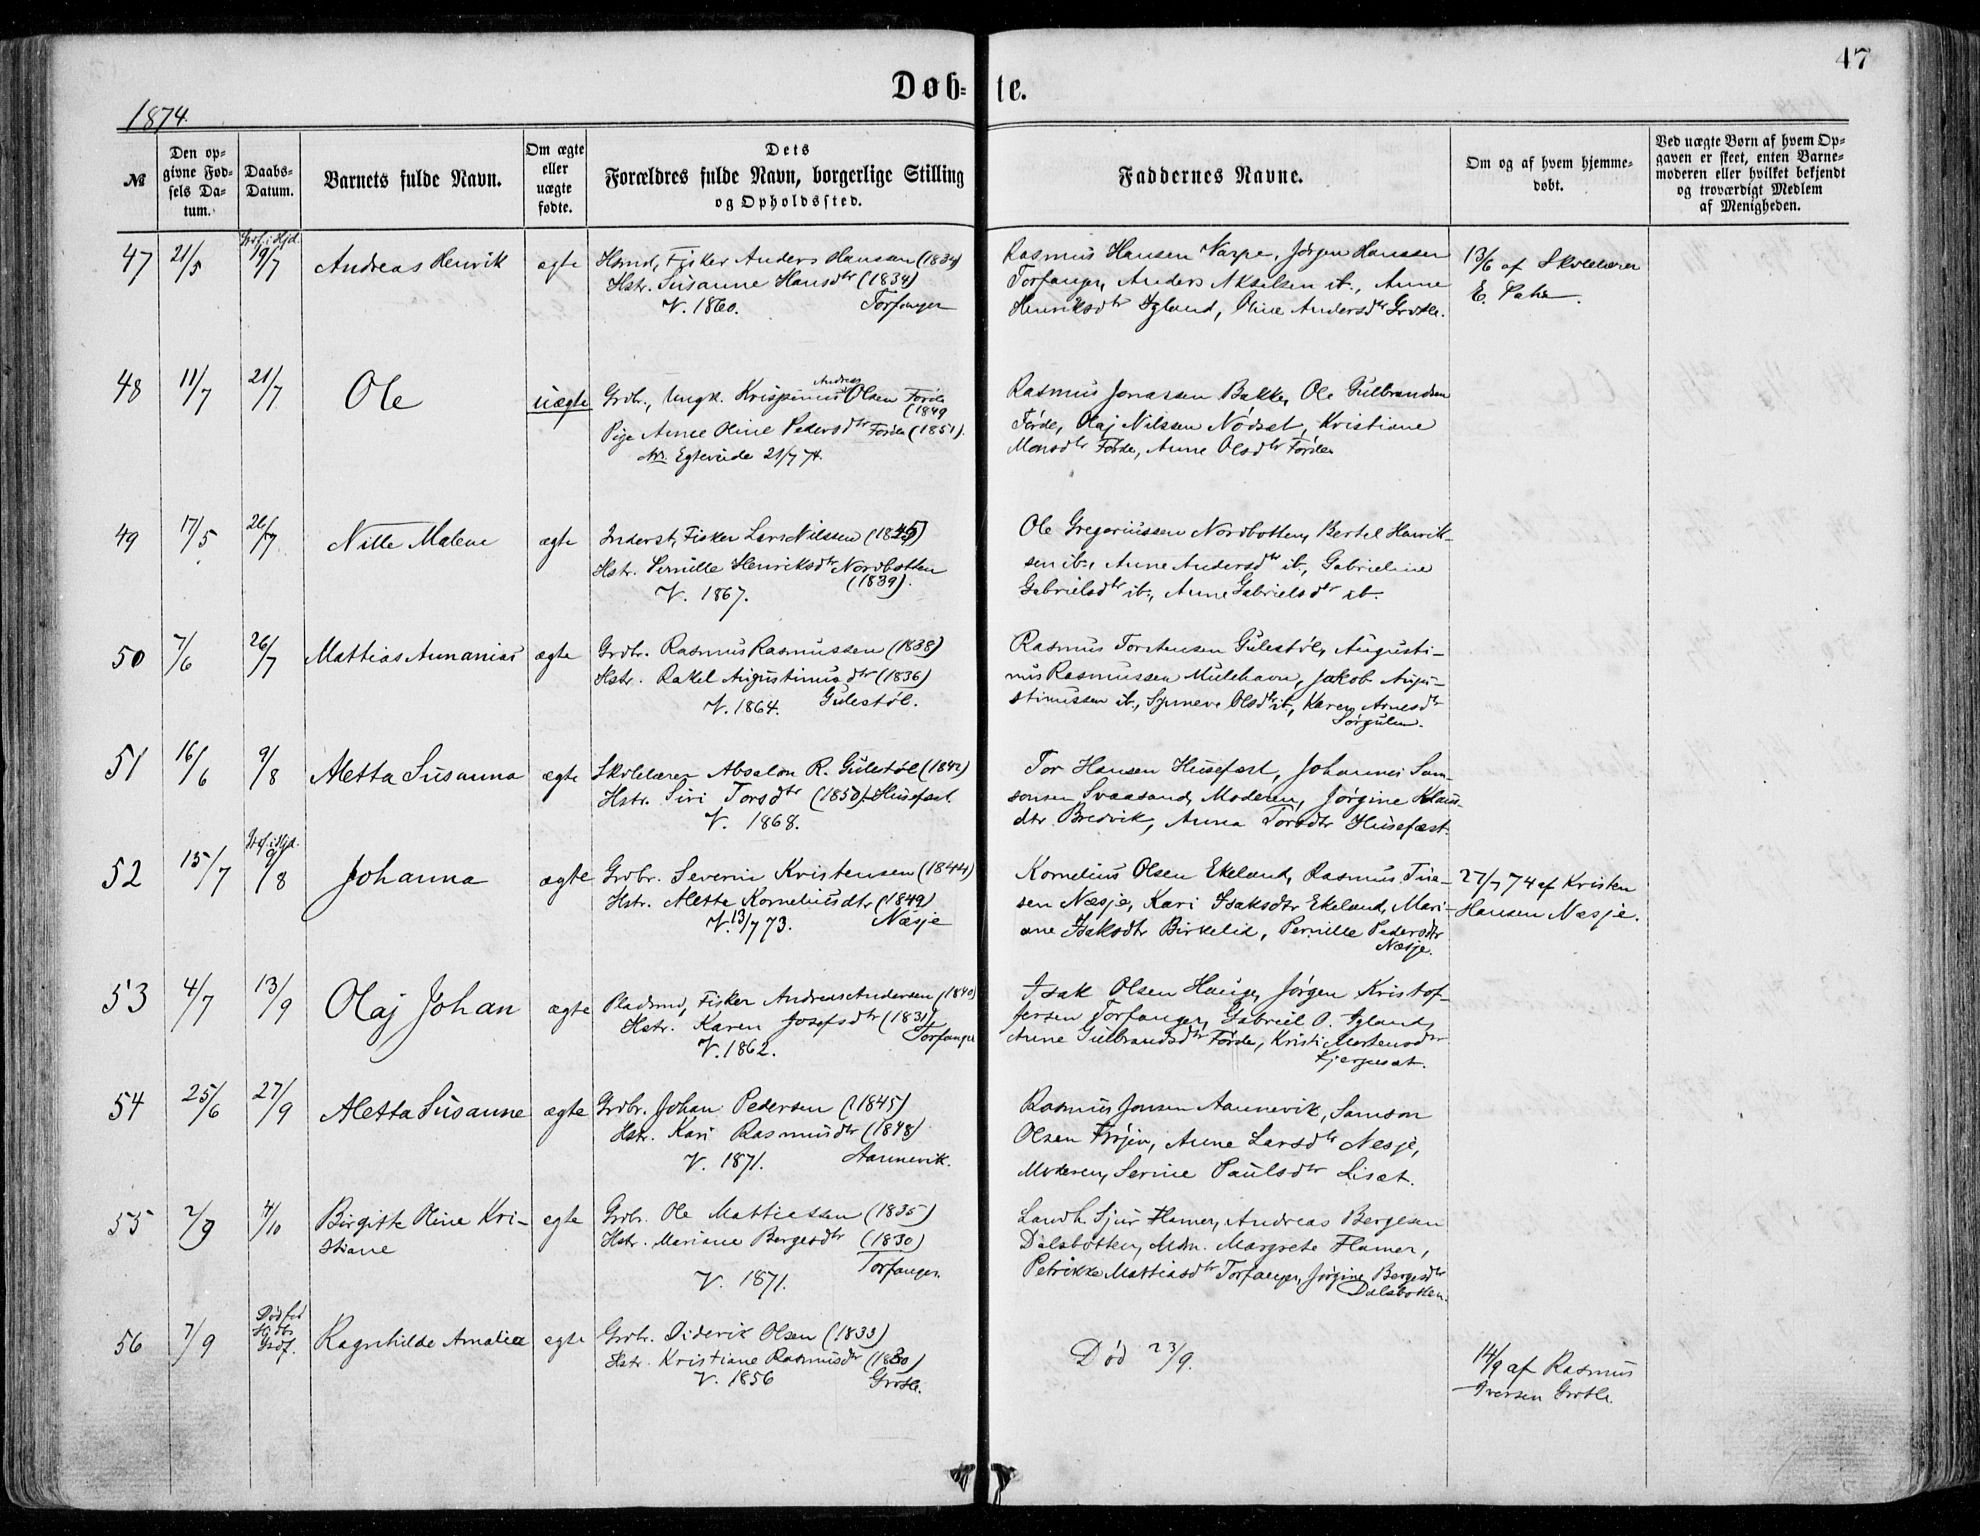 47
Døb-te.
1874
№
Den op-
givne Fød-
sels Da-
tum.
Daabs-
Datum.
Barnets fulde Navn.
Om ægte
eller
uægte
fødte.
Dets
Forældres fulde Navn, borgerlige Stilling
og Opholdssted.
Faddernes Navne.
Om og af hvem hjemme-
døbt.
Ved uægte Børn af hvem Op-
gaven er skeet, enten Barne-
moderen eller hvilket bekjendt
og troværdigt Medlem
af Menigheden.
47 21/5 19/7 Andreas Henrik ægte
Hsmd, Fisker Anders Hansen (1834)
Hstr. Susanne Hansdtr (1834)
V. 1860. Torfanger
Rasmus Hansen Varpe, Jørgen Hanssen
Torfanger, Anders Akselsen it., Anne
Henriksdtr Igland, Oline Andersdtr Grotle.
13/6 af Skolelærer
E.
48 11/7 21/7 Ole uægte
Andreas
Grdbr., Ungk. Krispinus Olsen Førde
(1849
Pige Anne Oline Pedersdtr Førde (1851).
Egteviede 21/7 74.
Rasmus Jonassen Bakke, Ole Gulbrandsen
Førde, Olaj Nilssen Nødset, Kristiane
Monsdtr Førde, Anne Olsdtr Førde
49 17/5 26/7 Nille Malene ægte
Inderst, Fisker Lars Nilssen (1845)
Hstr. Pernille Henriksdtr Nordbotten
(1839).
V. 1867.
Ole Gregoriussen Nordbotten, Bertel Henrik-
sen it., Anne Andersdtr it., Gabrieline
Gabrielsdtr it., Anne Gabrielsdtr it.
50 7/6 26/7 Mattias Annanias ægte
Grdbr. Rasmus Rasmussen (1838)
Hstr. Rakel Augustinusdtr (1836)
V. 1864. Gulestøl.
Rasmus Torstensen Gulestøl, Augusti-
nus Rasmussen Mulehavn, Jakob Augu-
stinussen it., Synneve Olsdtr it., Karen Arnesdtr
Sørgulen.
51 16/6 9/8 Aletta Susanna ægte
Skolelærer Absalon R. Gulestøl (1842)
Hstr. Siri Torsdtr (1850). Husefæst
V. 1868.
Tor Hansen Husefæst, Johannes Sam-
sonsen Svaasand, Moderen, Jørgine Klaus-
dtr. Bredvik, Anna Torsdtr Husefæst.
52 15/7 9/8 Johanna ægte
Grdbr. Severin Kristensen (1844)
Hstr. Alette Korneliusdtr (1849)
V. 13/7 73. Næsje
Kornelius Olsen Ekeland, Rasmus Ive-
sen Næsje, Kari Isaksdtr Ekeland, Mari-
ane Isaksdtr Birkelid, Pernille Pedersdtr
Næsje.
27/7 74 af Kristen
Hansen Næsje.
53 4/7 13/9 Olaj Johan ægte
Pladsmd, Fisker Andreas Andersen (1840)
Hstr. Karen Josefsdtr (1831)
Torfanger
V. 1862.
Isak Olsen Hauge, Jørgen Kristof-
fersen Torfanger, Gabriel O. Igland,
Anne Gulbrandsdtr Førde, Kristi Mortensdtr
54 25/6 27/9 Aletta Susanne ægte
Grdbr. Johan Pedersen (1845)
Hstr. Kari Rasmusdtr (1848)
V. 1871. Aannevik.
Rasmus Jonsen Aannevik, Samson
Olsen Frøjen, Anne Larsdtr Nesje,
Moderen, Serine Paulsdtr Liset.
55 2/9 4/10 Birgitte Oline Kri- egte
stiane
Grdbr. Ole Mattiassen (1835)
Hstr. Mariane Børgesdtr (1830)
Torfanger.
V. 1871.
Landh. Sjur Hamer, Andreas Bergesen
Dalsbotten, Mdm. Margrete Hamer,
Petrikke Mattiasdtr Torfanger, Jørgine Bergesdtr
Dalsbotten.
56 7/9 Ragnhilde Amalia egte
Grdbr. Diderik Olsen (1833)
Hstr. Kristiane Rasmusdtr (1830)
V. 1856 Grotle.
Død 23/9.
14/9 af Rasmus
Iversen Grotle.